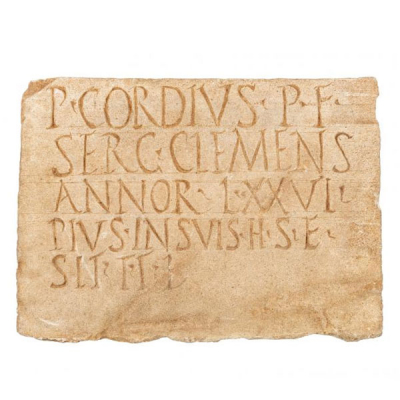 P·CORDIVS·P·F·
SERG·CLEMENS
ANNOR·LXXVI·
PIVS·IN SVIS·H·S·E·
S·T·T·L